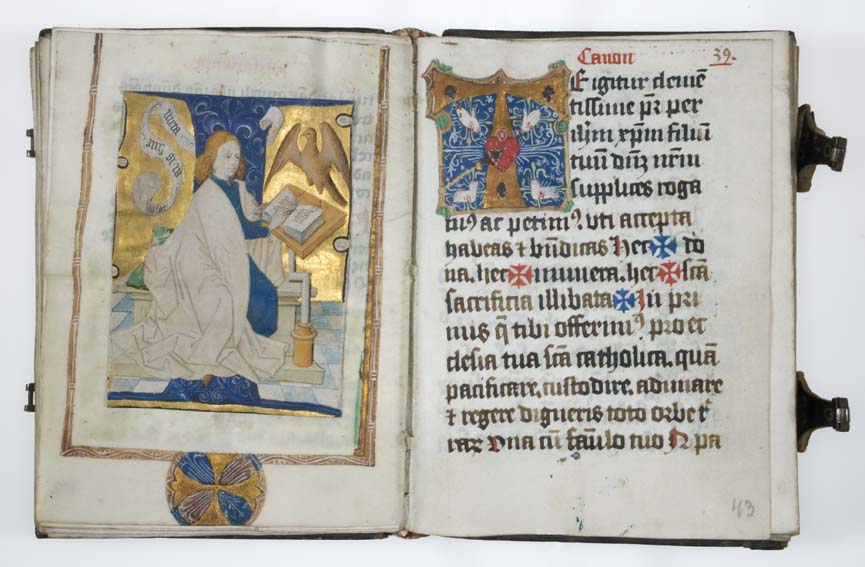 Canon 39.
Te igitur cleme
tissime pr̄ per
ihm xpm filiū
tuū dnz nrm
supplices roga
mꝰ ac petimꝰ. Uti accepta
habeas ⁊ bn̄dicas Hec ✠ do
na. hec ✠ munera. hec ✠ scā
sacrificia illibata ✠ In pri
mis q̄ tibi offerimꝰ pro ec
clesia tua scā catholica. quā
pacificare. custodire. adunare
⁊ regere digneris toto orbe tr̄
raꝝ Una cū famlo tuo N pa
43